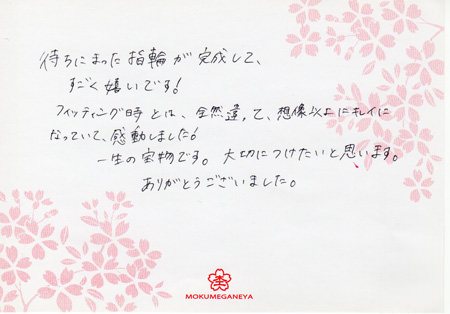 待ちにまった指輪が完成して、
すごく嬉いです!
フィッティング時とは、全然違って、想像以上にキレイに
なっていて、感動しました!
一生の宝物です。大切につけたいと思います。
ありがとうございました。
MOKUMEGANEYA